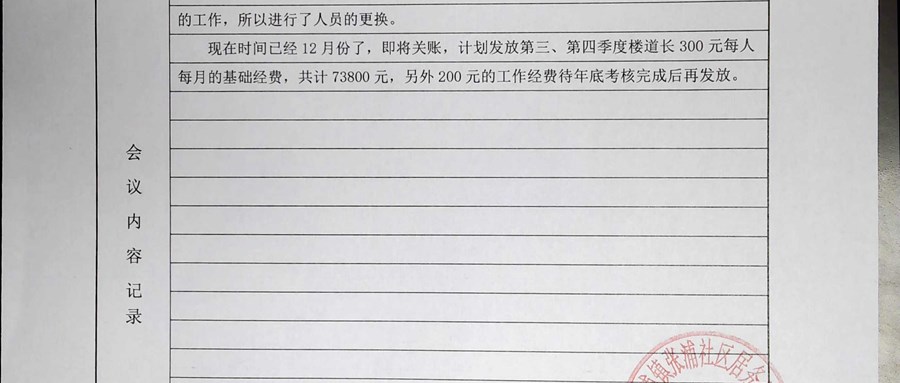 的工作，所以进行了人员的更换。
现在时间已经12月份了，即将关账，计划发放第三、第四季度楼道长300元每人
每月的基础经费，共计73800元，另外200元的工作经费待年底考核完成后再发放。
会议内容记录
镇张浦社区居务